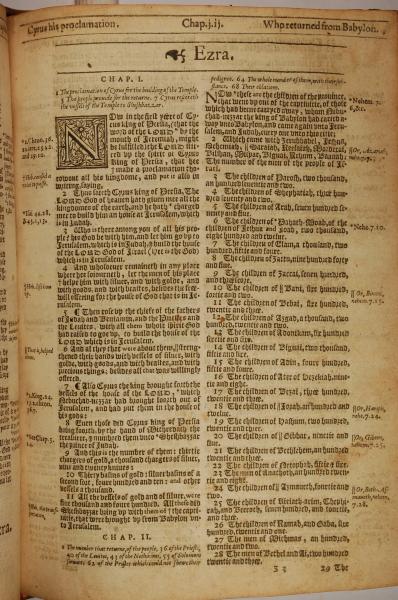 Cyrus his proclamation.
Chap.j.ij.
Who returned from Babylon.
Ezra.
CHAP. I.
1 The proclamation of Cyrus for the building of the Temple.
5 The people provide for the returne. 7 Cyrus restoreth
the vessels of the Temple to Sheshbazzar.
NOw in the first yeere of Cy-
rus king of Persia, (that the
word of the LORD by the
mouth of Jeremiah, might
be fulfilled) the LORD stir-
red up the spirit of Cyrus
king of Persia, that hee
made a proclamation tho-
rowout all his kingdome, and put it also in
writing, saying,
2 Thus saith Cyrus king of Persia, The
LORD God of heaven hath given mee all the
kingdomes of the earth, and he hath charged
me to build him an house at Jerusalem, which
is in Judah.
3 Who is there among you of all his peo-
ple? his God be with him, and let him go up to
Jerusalem, which is in Judah, & build the house
of the LORD God of Israel (he is the God)
which is in Jerusalem.
4 And whosoever remaineth in any place
where hee sojourneth, let the men of his place
helpe him with silver, and with golde, and
with goods, and with beasts, besides the free
will offering for the house of God that is in Je-
rusalem.
5 ¶ Then rose up the chiefe of the fathers
of Judah and Benjamin, and the Priests and
the Levites, with all them whose spirit God
had raised to goe up, to build the house of the
LORD which is in Jerusalem.
6 And all they that were about them, || streng-
thened their hands with vessels of silver, with
golde, with goods, and with beastes, and with
precious things, besides all that was willingly
offered.
7 ¶ Also Cyrus the king brought forth the
vessels of the house of the LORD, which
Nebuchad-nezzar had brought foorth out of
Jerusalem, and had put them in the house of
his gods:
8 Even those did Cyrus king of Persia
bring foorth, by the hand of Mithredath the
treasurer, & numbred them unto Sheshbazzar
the prince of Judah.
9 And this is the number of them: thirtie
chargers of gold, a thousand chargers of silver,
nine and twenty knives:
10 Thirty basins of gold: silver basins of a
second sort, foure hundred and ten: and other
vessels a thousand.
11 All the vessels of gold and of silver, were
five thousand and foure hundred. All these did
Sheshbazzar bring up with them of the capti-
vitie, that were brought up from Babylon un-
to Jerusalem.
CHAP. II.
1 The number that returne, of the people, 36 of the Priests,
40 of the Levites, 43 of the Nethinims, 55 of Solomons
servants. 62 of the Priests which could not shew their
pedigree. 64 The whole number of them, with their sub-
stance. 68 Their oblations.
NOw *these are the children of the province,
that went up out of the captivitie, of those
which had beene carried away, whom Nebu-
chad-nezzar the king of Babylon had carried a-
way unto Babylon, and came again unto Jeru-
salem, and Judah, every one unto his citie;
2 Which came with Zerubbabel, Jeshua,
Nehemiah, || Saraiah, Reelaiah, Mordecai,
Bilshan, Mizpar, Bigvai, Rehum, Baanah:
The number of the men of the people of Is-
rael:
3 The children of Parosh, two thousand,
an hundred seventie and two.
4 The children of Shephatiah, three hun-
dred seventy and two.
5 The children of Arah, seven hundred se-
venty and five.
6 The children of *Pahath-Moab, of the
children of Jeshua and Joab, two thousand,
eight hundred and twelve.
7 The children of Elam, a thousand, two
hundred, fiftie and foure.
8 The children of Zattu, nine hundred forty
and five.
9 The children of Zaccai, seven hundred,
and threescore.
10 The children of || Bani, sixe hundred,
fortie and two.
11 The children of Bebai, sixe hundred,
twentie and three.
12 The children of Azgad, a thousand, two
hundred, twentie and two.
13 The children of Adonikam, sixe hundred
sixtie and sixe.
14 The children of Bigvai, two thousand,
fiftie and sixe.
15 The children of Adin, foure hundred,
fiftie and foure.
16 The children of Ater of Hezekiah, nine-
tie and eight.
17 The children of Bezai, three hundred,
twentie and three.
18 The children of || Jorah, an hundred and
twelve.
19 The children of Hashum, two hundred,
twentie and three.
20 The children of || Gibbar, ninetie and
five.
21 The children of Bethlehem, an hundred
twentie and three.
22 The men of Netophah, fiftie & sixe.
23 The men of Anathoth, an hundred twen-
tie and eight.
24 The children of || Azmaveth, fourtie and
two.
25 The children of Kiriath-arim, Chephi-
rah, and Beeroth, seven hundred, and fourtie,
and three.
26 The children of Ramah, and Gaba, sixe
hundred, twentie and one.
27 The men of Michmas, an hundred,
twentie and two.
28 The men of Bethel and Ai, two hundred
twentie and three.
29 The
*Nehem. 7.
6,&c.
*Nehe.7.10.